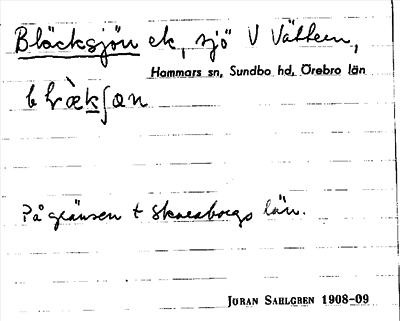 Bläcksjön ek, sjö V Vättern,
Hammars sn, Sundbo hd, Örebro län
På gränsen t Skaraborgs län.
JÖRAN SAHLGREN 1908-09